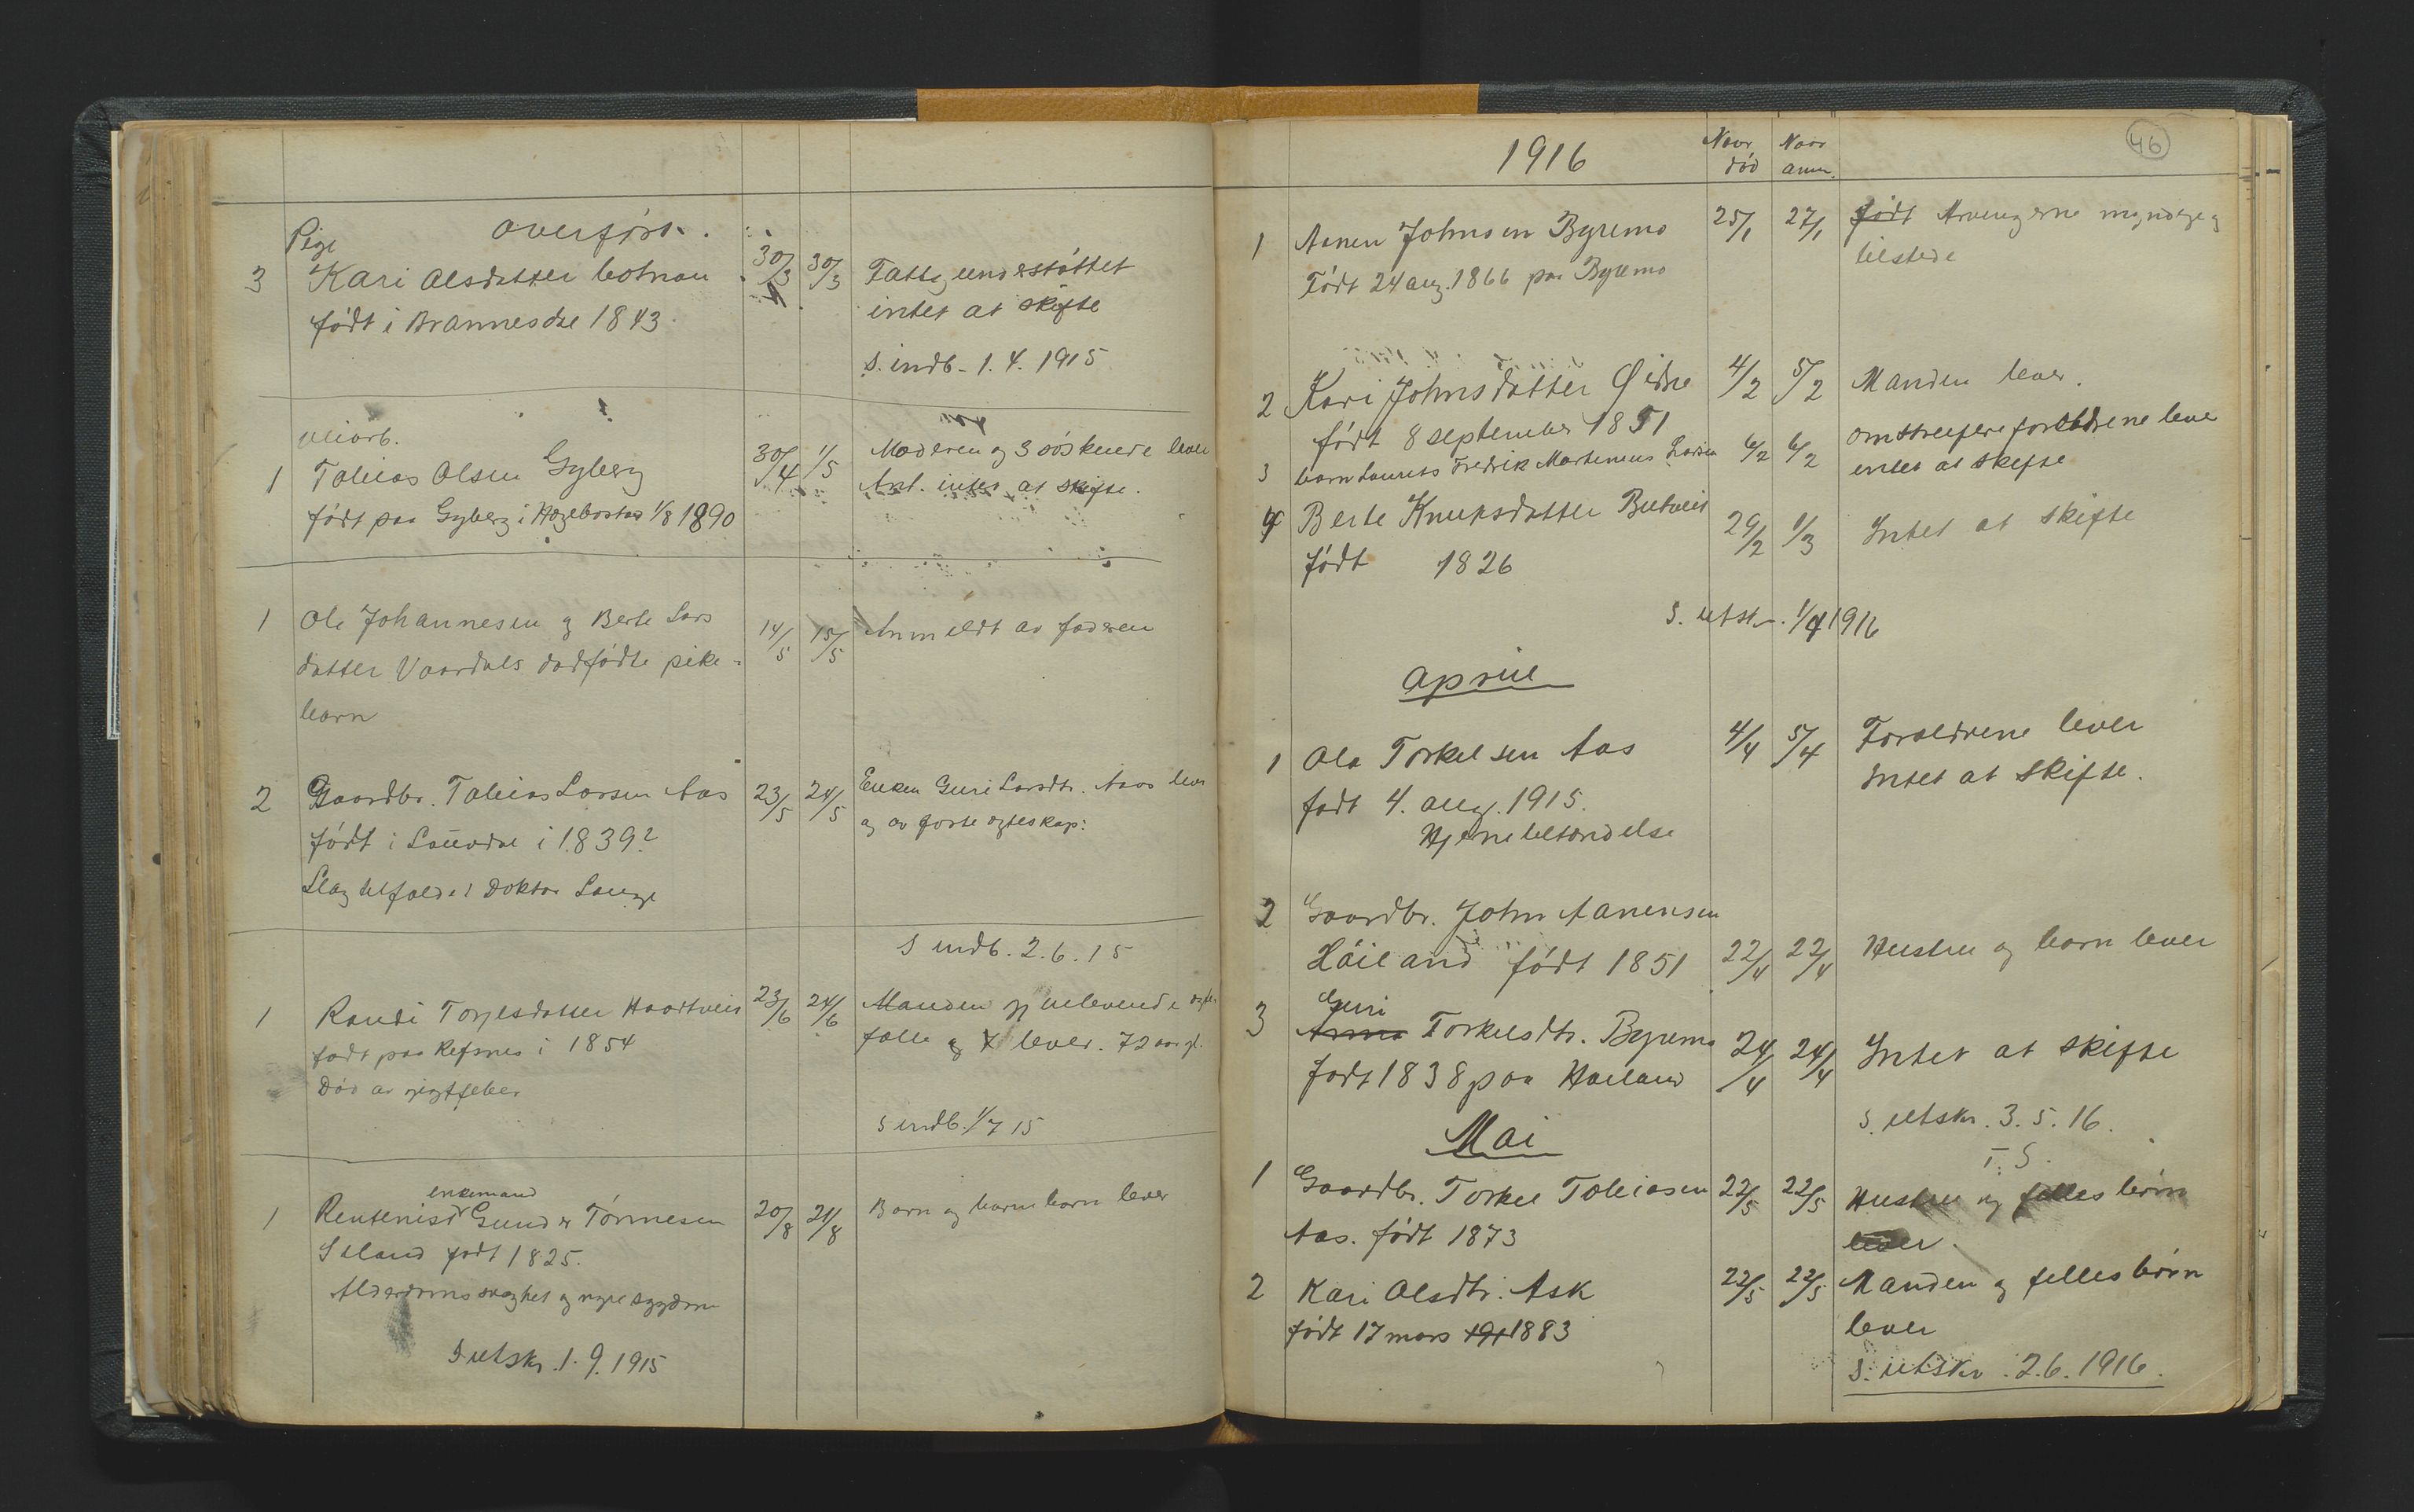 overført.
Pige
3 Kari Olsdatter Botnan 30/3 30/3 Fattigunderstöttet
født i Brannesdse 1843. intet at skifte
S. indb. 1.4.1915
Veiarb.
1 Tobias Olsen Gyberg 30/4 1/5 Moderen og 3 søskende lever
født paa Gyberg i Hægebostad 1/8 1890 Ant. intet at skifte.
1 Ole Johannesen og Berte Lars 14/5 15/5 Anmeldt av faderen
datter Vaardals dødfødte pike-
barn
2 Gaardbr. Tobias Larsen Aas 23/5 24/5 Enken Guri Larsdtr. Aas lever
født i Laudal i 1839? og av første egteskap:
Slagtilfælde? Doktor Lange
S indb. 2.6.15
1 Randi Torjesdatter Haartveit 23/6 24/6 Manden gjenlevende
født paa Refsnes i 1854 fælle og lever. 72 aar gl.
Død av gigtfeber
S indb. 1/7 15
enkemand
1 Rentenist Gunder Tønnesen 20/8 21/8 Barn og barnebarn lever
født 1825.
Alderdomssvaghet og nyresygdom
S utskr. 1.9.1915
46
1916 Naar død Naar anm.
1 Aanen Johnsen Byremo 25/1 27/1 født Arvingerne myndige og
Født 24 aug. 1866 paa Byremo tilstede
2 Kari Johnsdatter Øidne 4/2 5/2 Manden lever.
født 8 september 1851
3 barn Laurits Fredrik Martenius Larsen 6/2 6/2 omstreifere forældrene lever
intet at skifte
4 Berte Knutsdatter Butveit 29/2 1/3 Intet at skifte
født 1826
S. utskr. 1/4 1916
April
1 Ola Torkelsen Aas 4/4 5/4 Forældrene lever
født 4. aug. 1915. Intet at skifte.
Hjernebetændelse
2 Gaardbr. John Aanensen
Høiland født 1851 22/4 22/4 Hustru og barn lever
Guri
3 Anna Torkelsdtr. Byremo 24/4 24/4 Intet at skifte
født 1838 paa Høiland
S. utskr. 3.5.16.
T. S.
Mai
1 Gaardbr. Torkel Tobiasen 22/5 22/5 Hustru og felles børn
Aas. født 1873 lever.
2 Kari Olsdtr. Ask 22/5 22/5 Manden og felles børn
født 17 mars 191 1883 lever
S. utskr. 2.6.1916.